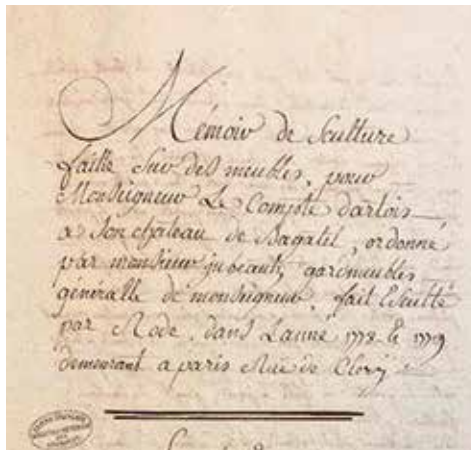 Mémoir de Sculture
faitte Sur des meubles, pour
Monseigneur Le Compte dartois
a Son chateau de Bagatel, ordonné
par monsieur jubeault, gardmeubles
generalle de monseigneur, fait
par Rode, dans Lanne 1778 & 1779
demeurant a paris Rüe de Clery